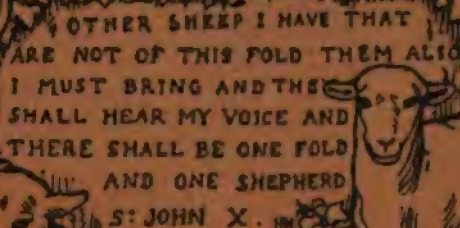 OTHER SHEEP I HAVE THAT
ARE NOT OF THIS FOLD THEM ALSO
I MUST BRING AND THEY
SHALL HEAR MY VOICE AND
THERE SHALL BE ONE FOLD
AND ONE SHEPHERD
S: JOHN X.